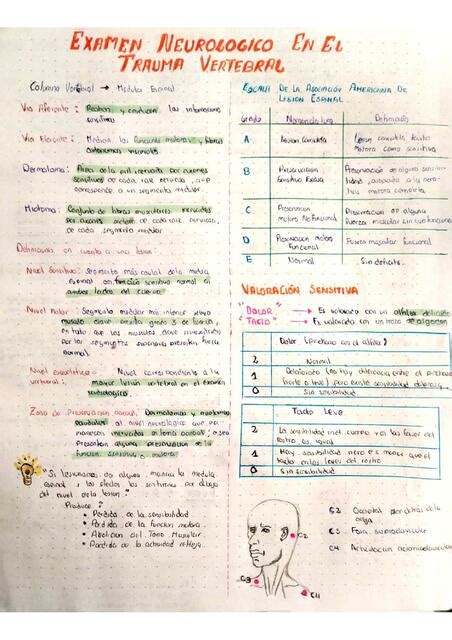 EXAMEN NEUROLOGICO EN EL
TRAUMA VERTEBRAL
Columna Vertebral → Medula Espinal
Via Aferente : Reciben y conducen las informaciones
sensitiva
Via Eferente : Median las funciones motoras y fibras
autonomas viscerales
Dermatoma : Area de la piel inervada por axones
sensitivos de cada raiz nerviosa, que
corresponde a un segmento medular.
Miotoma : Conjunto de fibras musculares inervadas
por axones motores de cada raiz nerviosa,
de cada segmento medular.
Definiciones en cuanto a una lesion
Nivel Sensitivo : segmento más caudal de la medula
espinal con función sensitiva normal en
ambos lados del cuerpo.
Nivel Motor : Segmento medular más inferior cuyo
musculo clave exista grado 3 de fuerza,
en tanto que los musculos clave
por los segmentos superiores presentan fuerza
normal.
Nivel esqueletico : Nivel correspondiente a la
vertebral : mayor lesion vertebral en el examen
radiologico.
Zona de Preservación parcial : Dermatomas y miotomas
caudales al nivel neurologico que per-
manecen inervados en forma parcial, o sea
presentan alguna preservacion de la
función sensitiva o motora.
"Si lesionamos de alguna manera la medula
espinal, los efectos los sentiremos por debajo
del nivel de la lesion."
Produce :
• Perdida de la sensibilidad
• Perdida de la funcion motora.
• Abolicion del Tono Muscular
• Perdida de la actividad refleja.
ESCALA DE LA ASOCIACIÓN AMERICANA DE
LESION ESPINAL
Grado Nomenclatura Definición
A Lesion Completa Lesion completa tanto
motora como sensitiva
B Preservacion
Sensitiva Preservación de alguna sensi-
bilidad, asociada a la
motora completa
C Preservacion
motora No Funcional Preservacion de alguna
fuerza muscular sin uso funcional
D Preservacion motora
Funcional Fuerza muscular funcional
E Normal Sin deficits.
VALORACIÓN SENSITIVA
"DOLOR" → Es valorado con un alfiler
"TACTO" → Es valorado con un trozo de algodon
Dolor (pinchazo con el alfiler)
2 Normal
1
0 Sin sensibilidad
Tacto Leve
2 La sensibilidad en el cuerpo y en las
rostro es igual
1 Hay sensibilidad pero es menor que el
0 Sin sensibilidad
C2
C3
C4
C2 Occipital, por detras de la
oreja
C3 Fosa supraclavicular
C4 Articulacion acromioclavicular